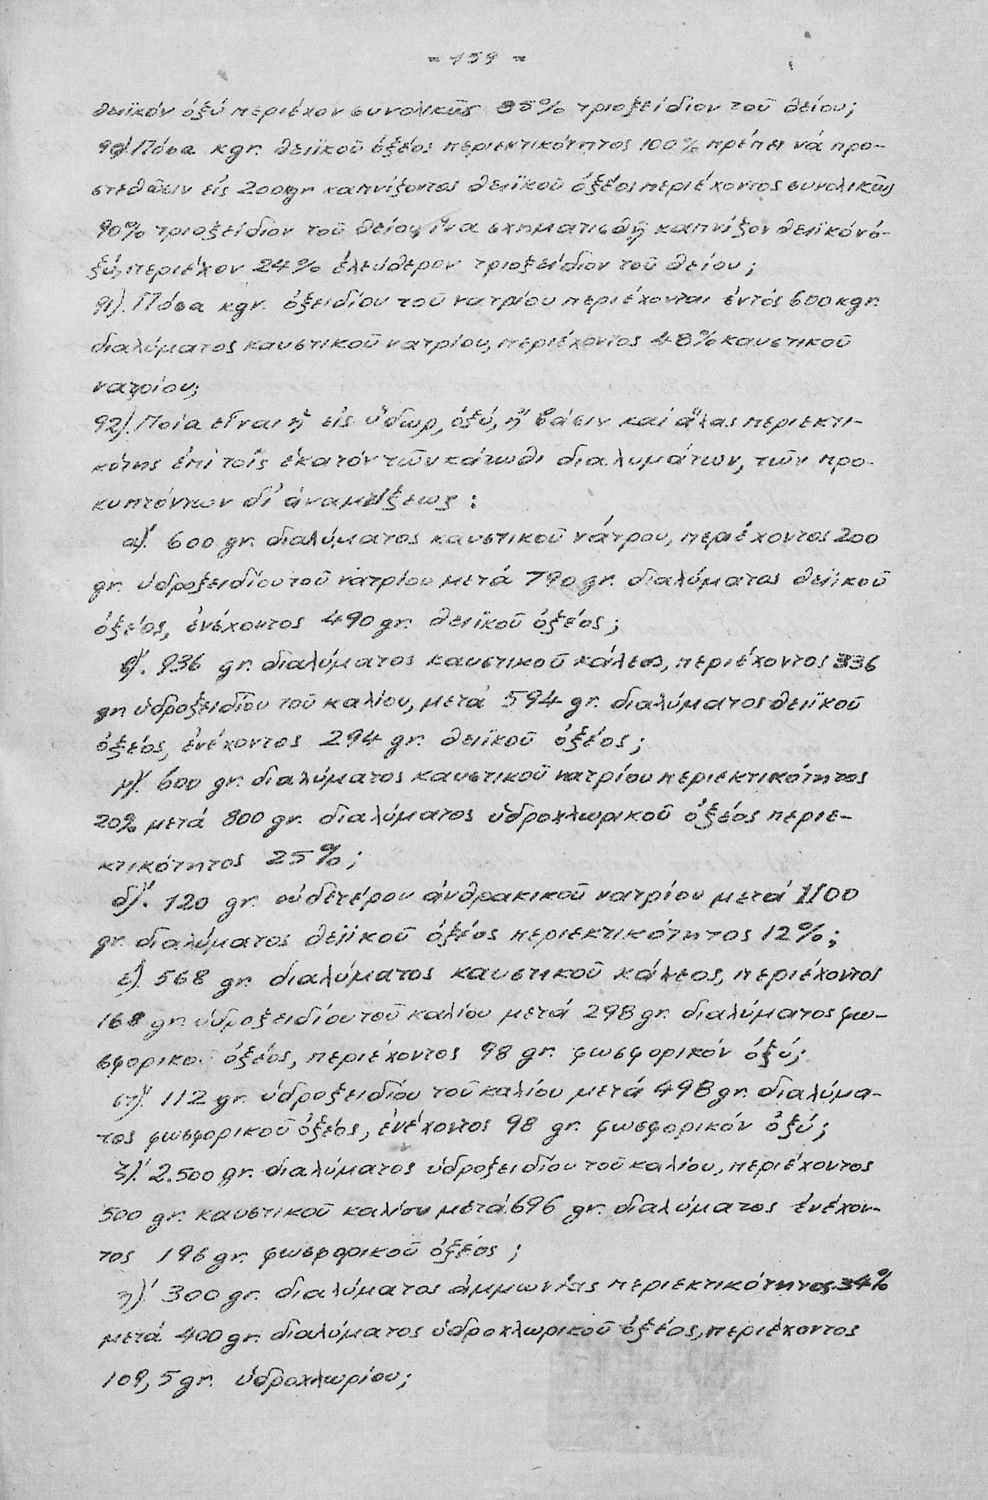 = 159 =
θειϊκόν ὀξύ περιέχον συνολικῶς 85% τριοξείδιον τοῦ θείου;
90). Πόσα kgr. θειϊκοῦ ὀξέος περιεκτικότητος 100% πρέπει νά προ-
στεθῶσιν εἰς 200kgr καπνίζοντος θειϊκοῦ ὀξέος περιέχοντος συνολικῶς
90% τριοξείδιον τοῦ θείου, ἵνα σχηματισθῇ καπνίζον θειϊκόν ὀ-
ξύ, περιέχον 24% ἐλεύθερον τριοξείδιον τοῦ θείου;
91). Πόσα kgr. ὀξειδίου τοῦ νατρίου περιέχονται ἐντός 600 kgr.
διαλύματος καυστικοῦ νατρίου, περιέχοντος 48% καυστικοῦ
νατρίου;
92). Ποία εἶναι ἡ εἰς ὕδωρ, ὀξύ, ἤ βάσιν καί ἅλας περιεκτι-
κότης ἐπί τοῖς ἑκατόν τῶν κάτωθι διαλυμάτων, τῶν προ-
κυπτόντων δι' ἀναμίξεως :
α)'. 600 gr. διαλύματος καυστικοῦ νάτρου, περιέχοντος 200
gr. ὑδροξειδίου τοῦ νατρίου μετά 790 gr. διαλύματος θειϊκοῦ
ὀξέος, ἐνέχοντος 490 gr. θειϊκοῦ ὀξέος;
β)'. 936 gr. διαλύματος καυστικοῦ κάλεως, περιέχοντος 336
gr. ὑδροξειδίου τοῦ καλίου, μετά 594 gr. διαλύματος θειϊκοῦ
ὀξέος, ἐνέχοντος 294 gr. θειϊκοῦ ὀξέος;
γ)'. 600 gr. διαλύματος καυστικοῦ νατρίου περιεκτικότητος
20% μετά 800 gr. διαλύματος ὑδροχλωρικοῦ ὀξέος περιε-
κτικότητος 25%;
δ)'. 120 gr. οὐδετέρου ἀνθρακικοῦ νατρίου μετά 1100
gr. διαλύματος θειϊκοῦ ὀξέος περιεκτικότητος 12%;
ε)'. 568 gr. διαλύματος καυστικοῦ κάλεος, περιέχοντος
168 gr. ὑδροξειδίου τοῦ καλίου μετά 298 gr. διαλύματος φω-
σφορικοῦ ὀξέος, περιέχοντος 98 gr. φωσφορικόν ὀξύ;
στ)'. 112 gr. ὑδροξειδίου τοῦ καλίου μετά 498 gr. διαλύμα-
τος φωσφορικοῦ ὀξέος, ἐνέχοντος 98 gr. φωσφορικόν ὀξύ;
ζ)'. 2.500 gr. διαλύματος ὑδροξειδίου τοῦ καλίου, περιέχοντος
500 gr. καυστικοῦ καλίου μετά 696 gr. διαλύματος ἐνέχον-
τος 196 gr. φωσφορικοῦ ὀξέος;
η)'. 300 gr. διαλύματος ἀμμωνίας περιεκτικότητος 34%
μετά 400 gr. διαλύματος ὑδροχλωρικοῦ ὀξέος, περιέχοντος
109,5 gr. ὑδροχλωρίου;